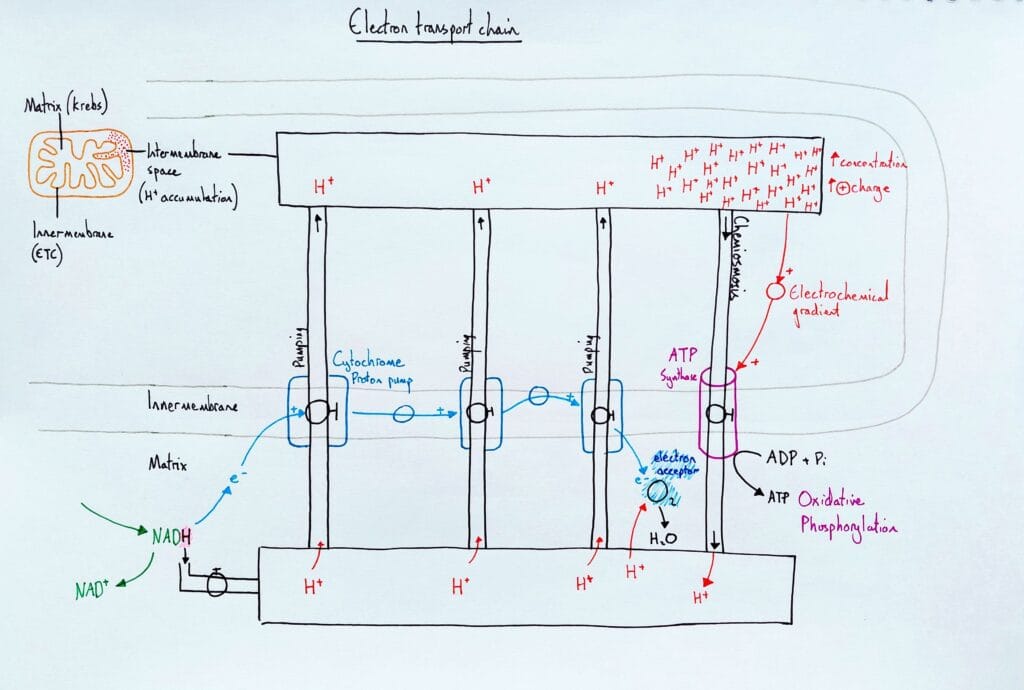 Electron transport chain
Matrix (krebs)
Intermembrane
space
(H+ accumulation)
Innermembrane
(ETC)
H+
H+
H+
H+ H+ H+ H+ H+ H+ H+ H+
H+ H+ H+ H+ H+ H+ H+
H+ H+ H+ H+ H+ H+ H+
H+ H+ H+ H+ H+
↑ concentration
↑ ⊕ charge
Chemiosmosis
+
Electrochemical
gradient
+
Pumping
Pumping
Pumping
Cytochrome
Proton pump
ATP
Synthase
Innermembrane
+
+
+
Matrix
e-
electron
acceptor
e-
O2
H2O
ADP + Pi
ATP
Oxidative
Phosphorylation
NADH
NAD+
+
H+
H+
H+
H+
H+